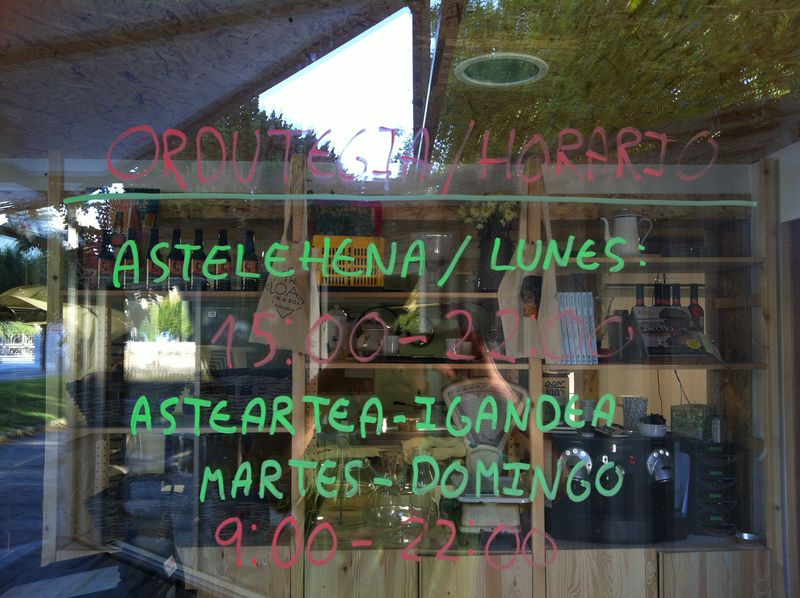 ORDUTEGIA/HORARIO
ASTELEHENA/LUNES:
15:00-22:00
ASTEARTEA-IGANDEA
MARTES-DOMINGO
9:00-22:00
LOAF
IN A BOX